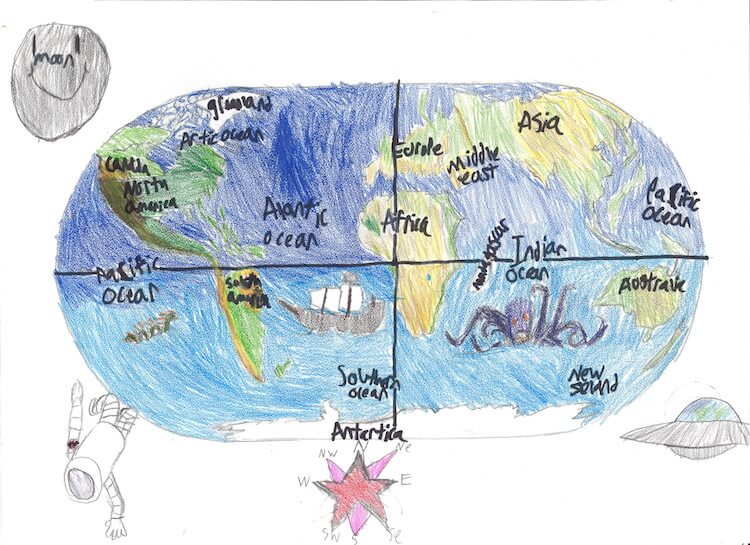 moon
greenland
Artic ocean
Canada
North
america
Atlantic
ocean
Europe
Middle
east
Asia
Africa
Pacific
ocean
Pacific
ocean
South
america
Indian
ocean
Australia
Southern
ocean
New
Antartica
NW
N
Ne
W
E
SW
S
Se